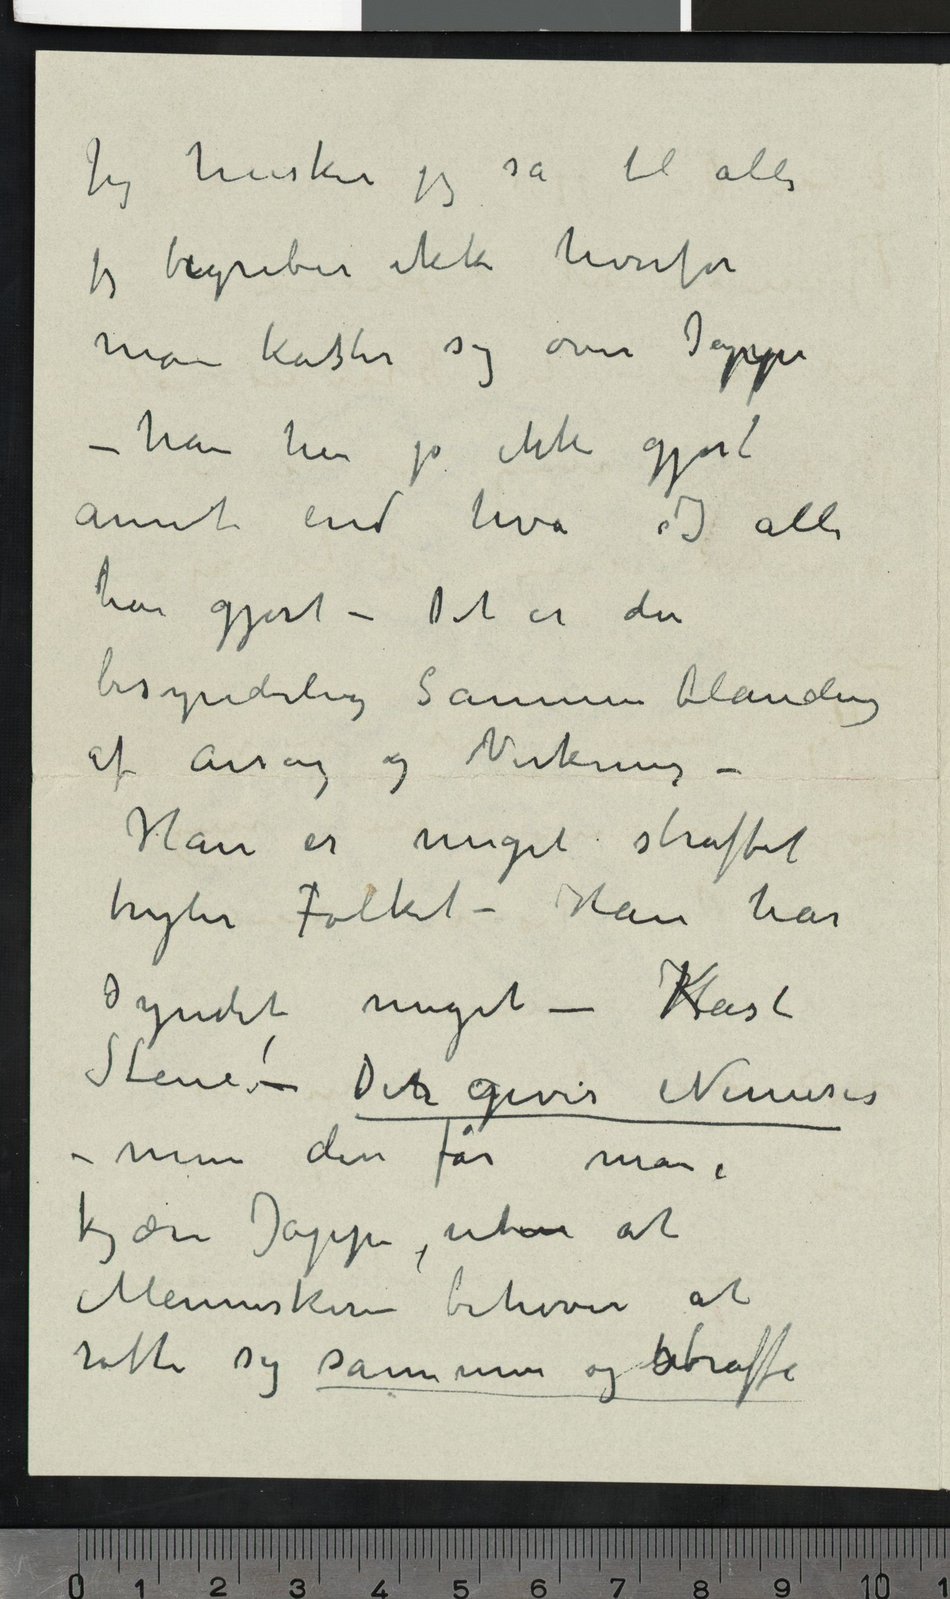 Jeg husker jeg sa til alle
jeg begriber ikke hvorfor
man kaster sig over Jappe
– han har jo ikke gjort
annet end hva I alle
har gjort – Det er den
besynderlig Sammenblanding
af Arsag og Virkning –
Han er meget straffet
bryter Folket – Han har
Syndet meget – Kast
Stene! – Det gives Nemesis
– men den får man,
kjære Jappe, uten at
Menneskene behøver at
rotte sig sammen og straffe
0 1 2 3 4 5 6 7 8 9 10